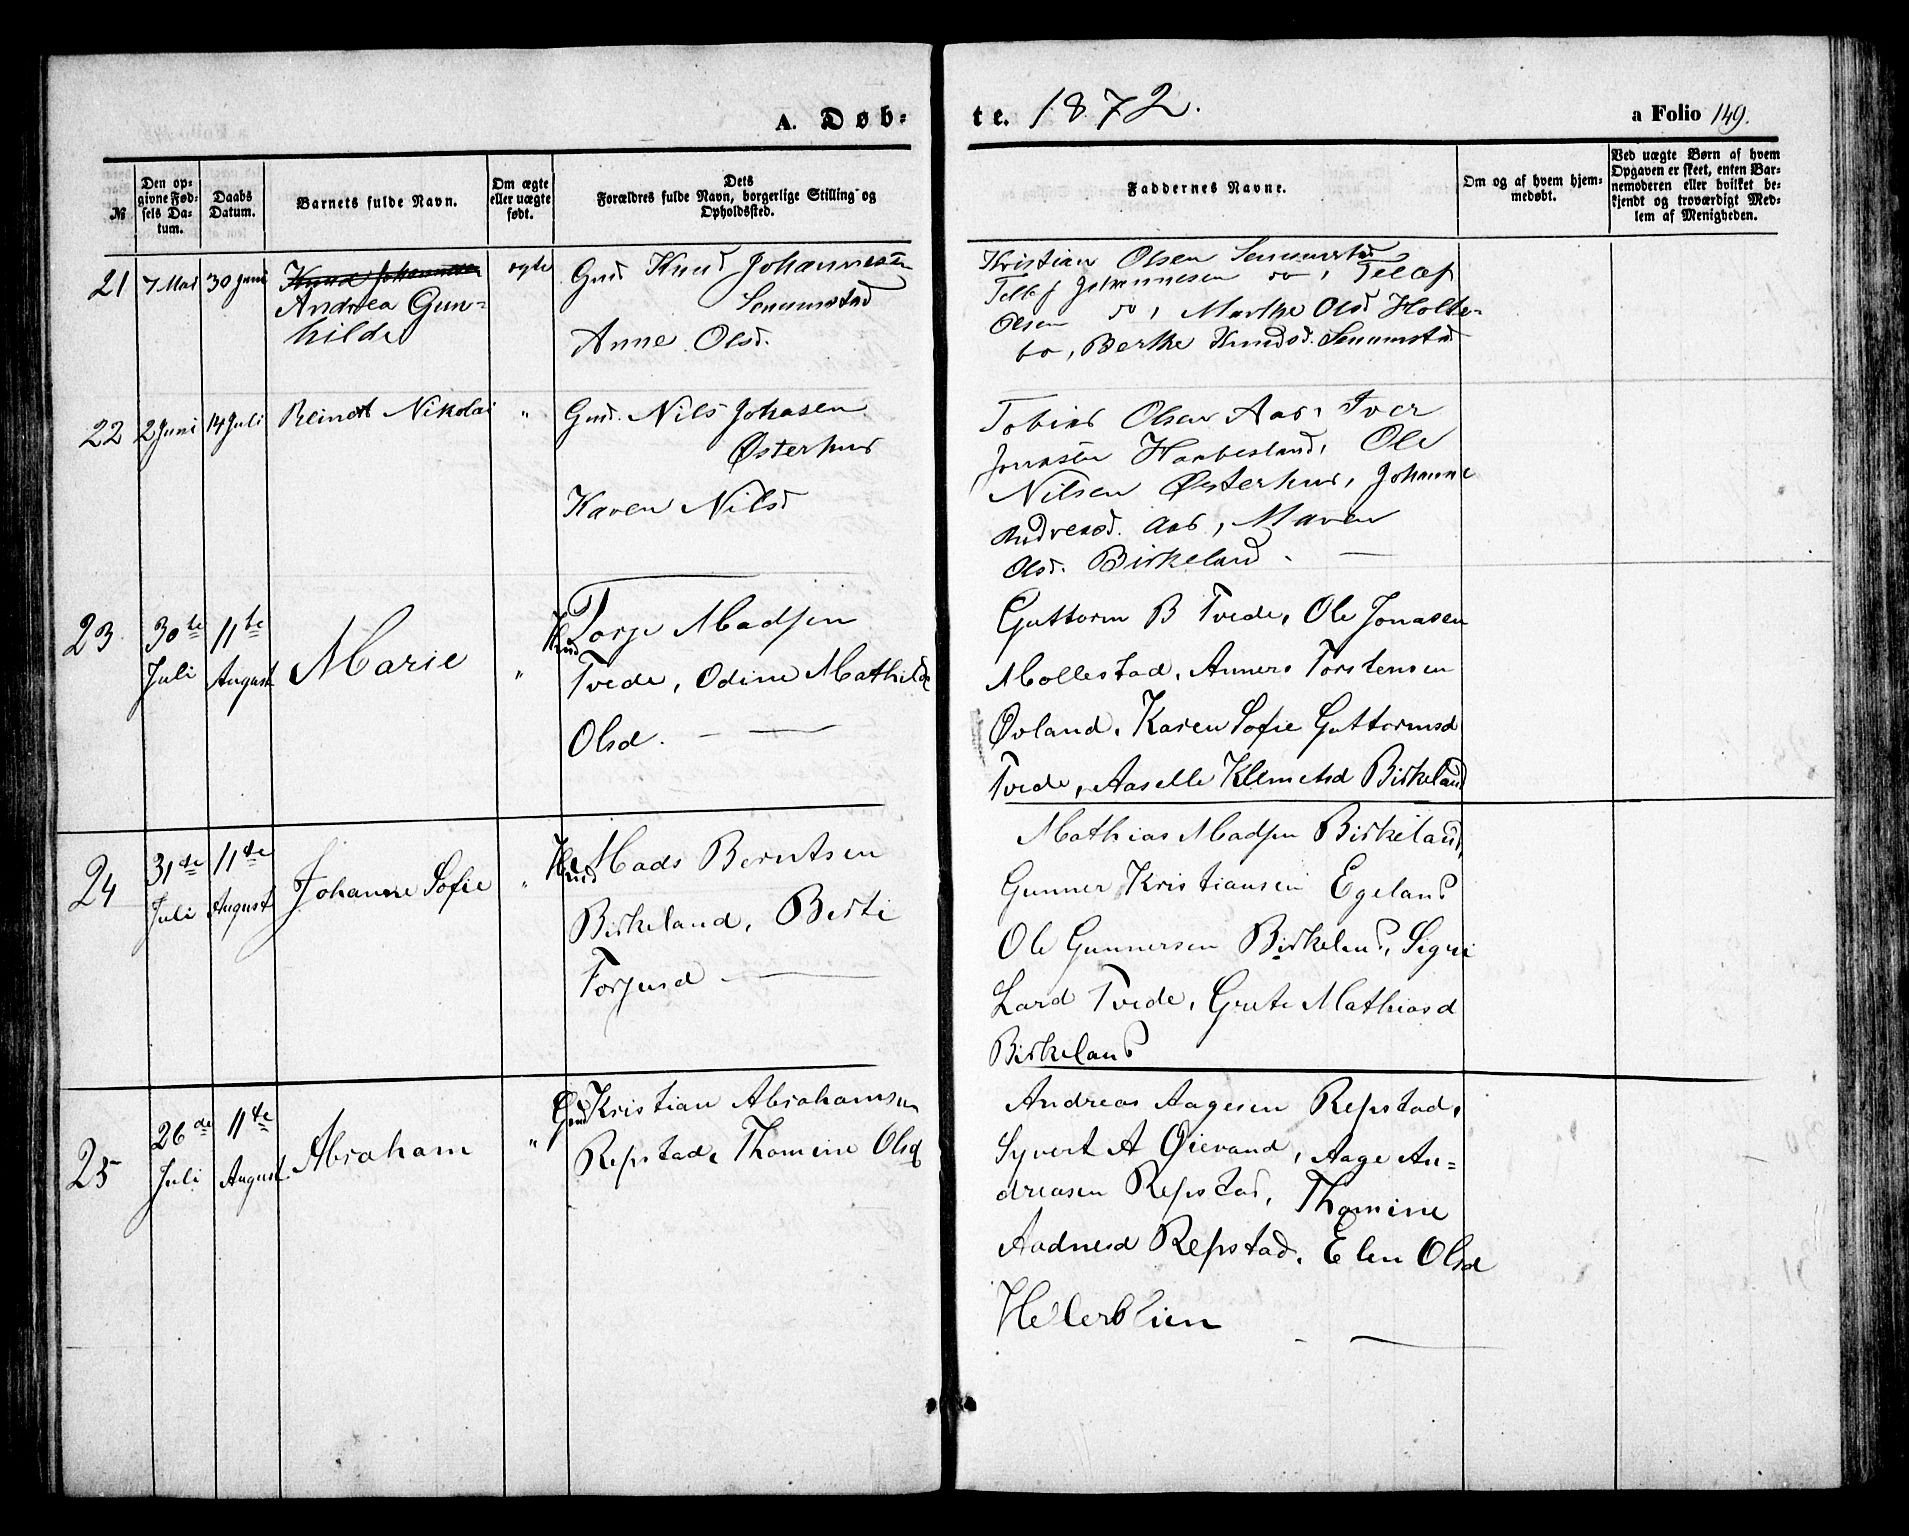 A. Døb-
te. 1872.
a Folio 149.
№
Den opgivne Fødsels Datum.
Daabs Datum.
Barnets fulde Navn.
Om ægte eller uægte født.
Dets Forældres fulde Navn, borgerlige Stilling og Opholdssted.
Faddernes Navne.
Om og af hvem hjemmedøbt.
Ved uægte Børn af hvem Opgaven er skeet, enten Barnemoderen eller hvilket bekjendt og troværdigt Medlem af Menigheden.
21 7 Mai 30 Juni
Knud Johannesen
Andrea Gun-
hilde
ægte
Gmd Knud Johannesen
Senumstad
Anne Olsd.
Kristian Olsen Senumstad
Tellef Johannesen do, Tellef
Olsen do, Marthe Olsd Holte-
bo, Berthe Knudsd. Senumstad
22 2 Juni 14 Juli Reindt Nikolai "
Gmd. Nils Johasen
Østerhus
Karen Nilsd
Tobias Olsen Aas, Iver
Jonasen Haabesland, Ole
Nilsen Østerhus, Johanne
Andreasd. Aas, Maren
Olsd. Birkeland.
23 30te Juli 11te August Marie "
Torje Madsen
Tvede, Odine Mathilde
Olsd.
Guttorm B Tvede, Ole Jonasen
Mollestad, Anners Torstensen
Øvland, Karen Sofie Guttormsd
Tvede, Aaselle Klemetsd Birkeland
24 31te Juli 11te August Johanne Sofie "
Mads Berntsen
Birkeland, Berte
Torjusd
Mathias Madsen Birkeland,
Gunner Kristiansen Egeland
Ole Gunnersen Birkeland, Signe
Larsd Tvede, Grete Mathiasd
Birkeland
25 26de Juli 11te August Abraham "
Gmd Kristian Abrahamsen
Repstad, Thomine Olsd
Andreas Aagesen Repstad,
Syvert A Øievand, Aage An-
dreasen Repstad, Thomine
Aadnesd Repstad, Elen Olsd
Hellerblien